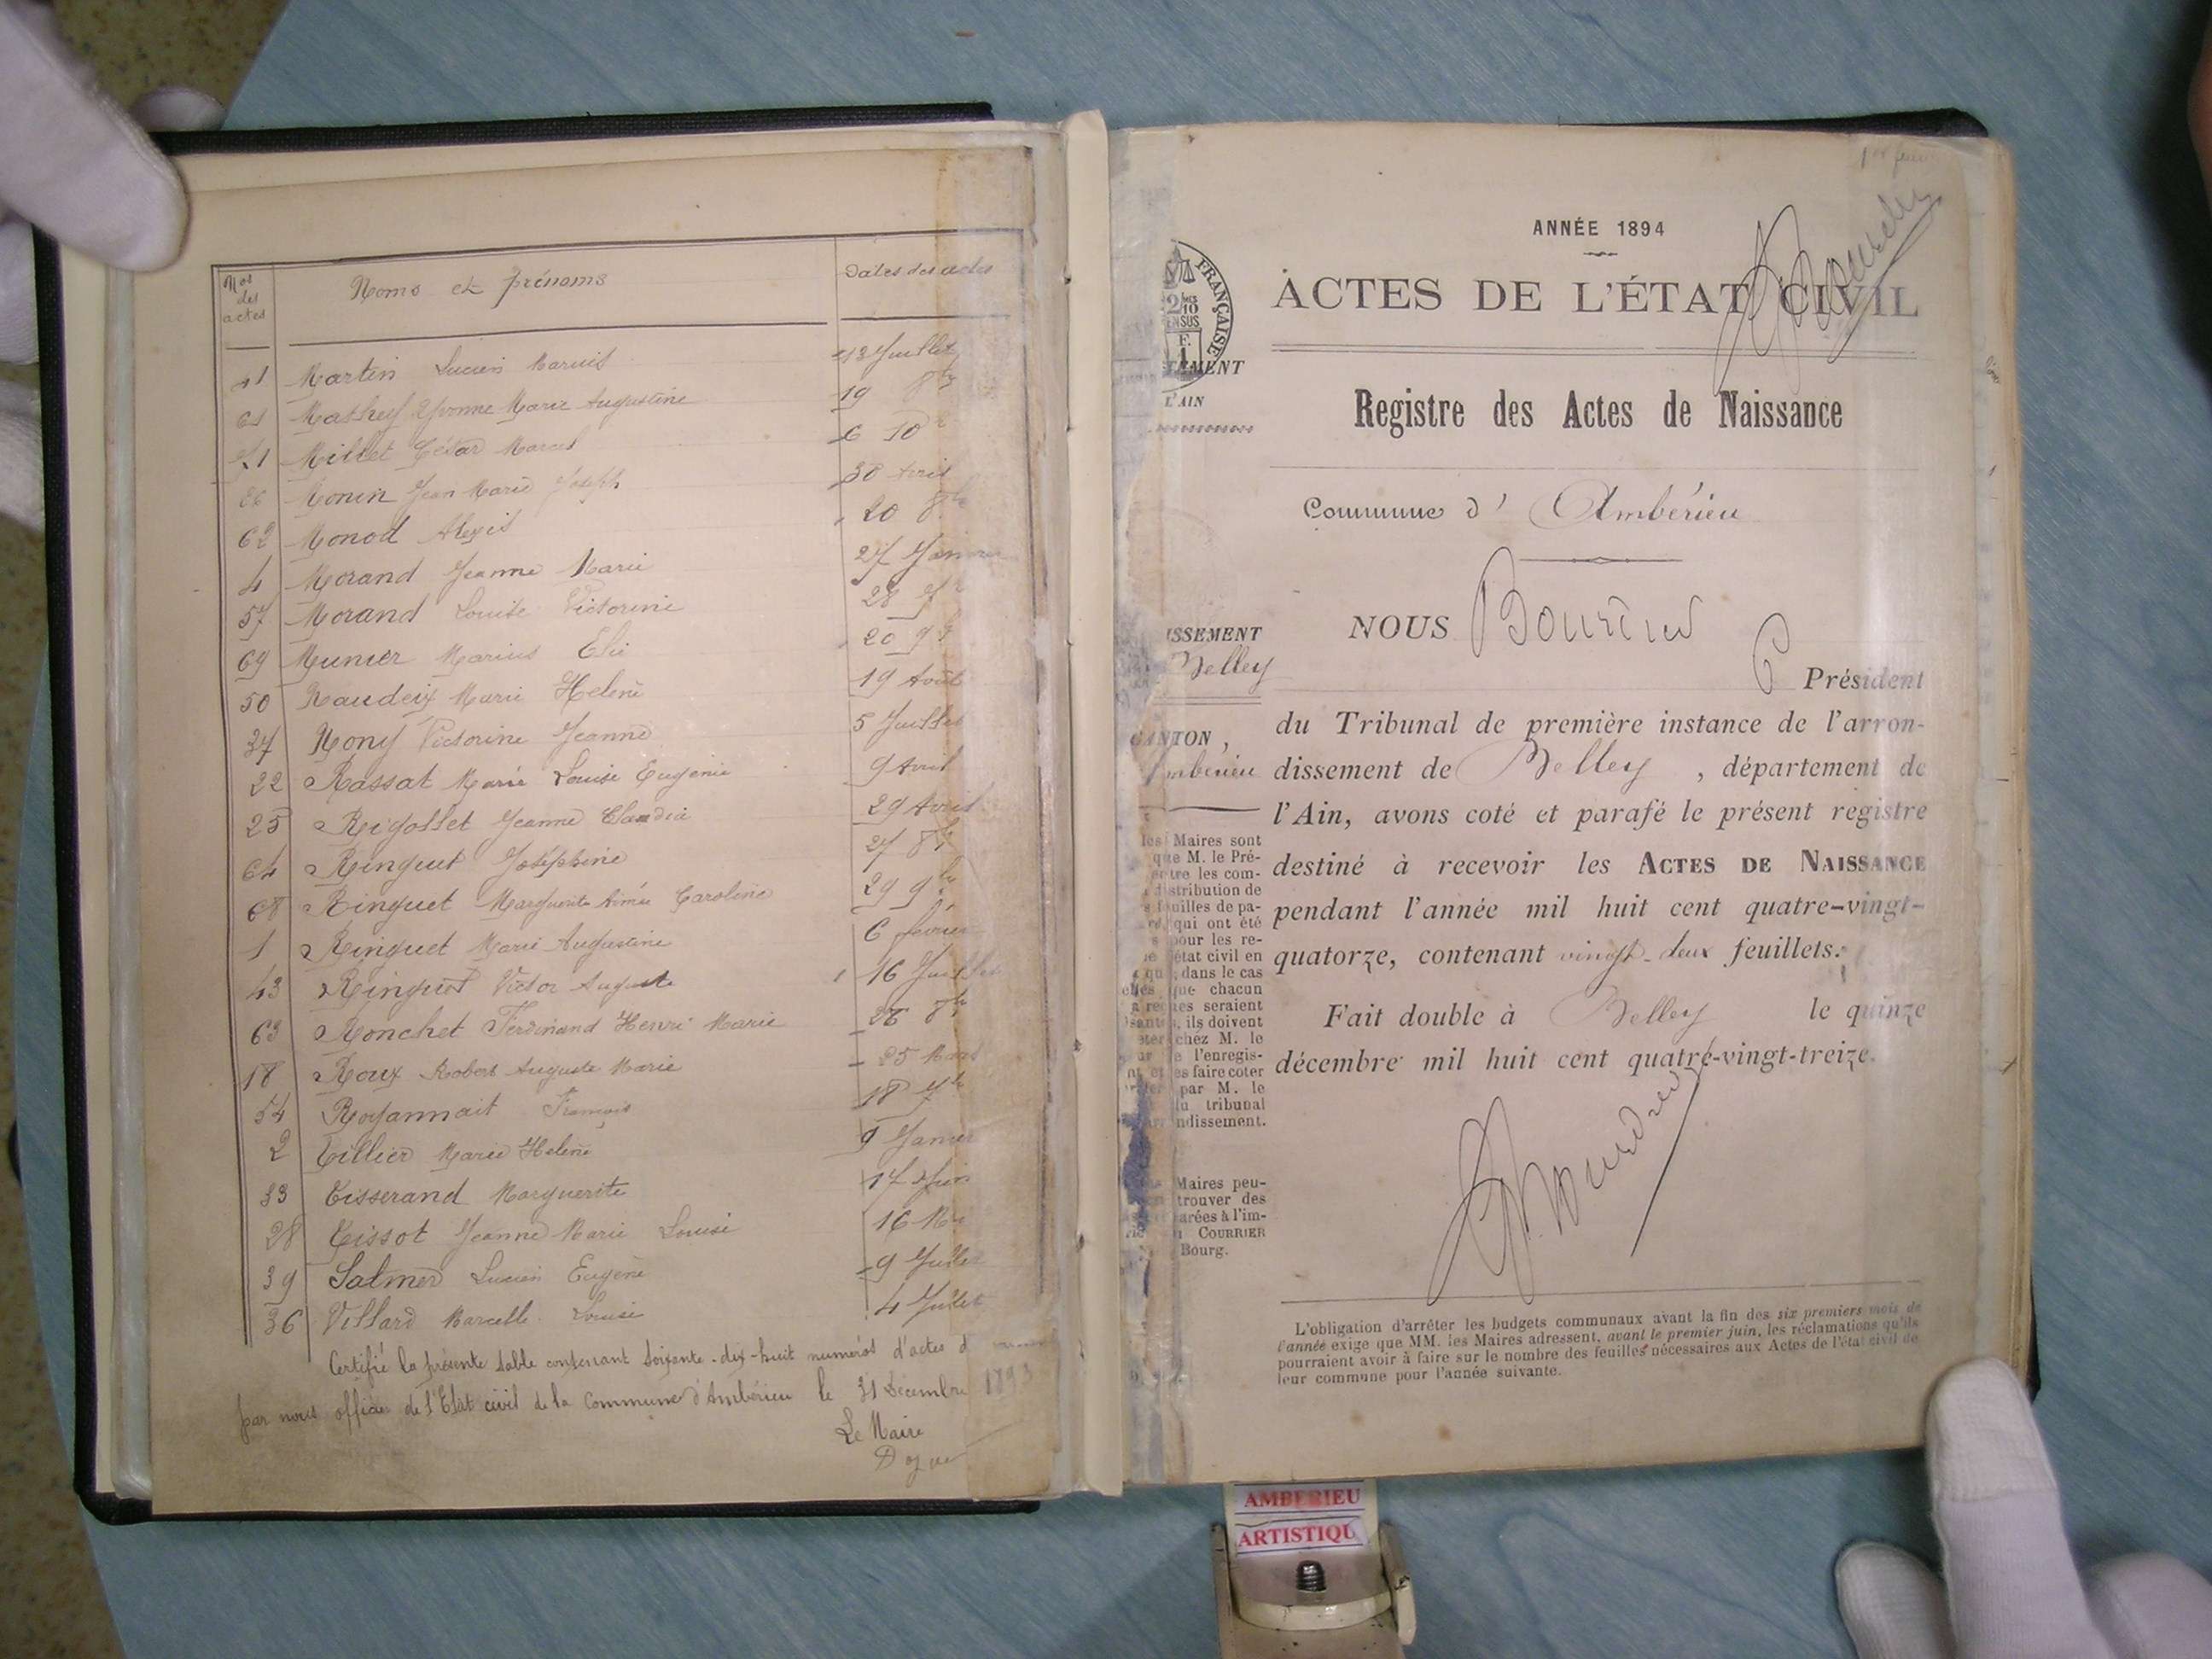 Nos des actes
Noms et prénoms
Dates des actes
41 Martin Lucien Marius 13 Juillet
61 Mathey Yvonne Marie Augustine 19 8bre
71 Millet César Marcel 6 10
26 Monin Jean Marie Joseph 30 Avril
62 Monod Alexis 20 8bre
4 Morand Jeanne Marie 27 Janvier
57 Morand Louise Victorine 28
69 Munier Marius Elie 20 9b
50 Naudeix Marie Helene 19 Août
37 Nony Victorine Jeanne 5 Juillet
22 Rassat Marie Louise Eugénie 9 Avril
25 Rigollet Jeanne Claudia 29 Avril
64 Ringuet Joséphine 27 8b
68 Ringuet Marguerite Aimée Caroline 29 9b
1 Ringuet Marie Augustine 6 février
43 Ringuet Victor Auguste 16 Juillet
63 Ronchet Ferdinand Henri Marie 26 8b
18 Roux Robert Auguste Marie 25 Mars
54 Royannait François 18 7b
2 Tillier Marie Helene 9 Janvier
33 Tisserand Marguerite 17 Juin
28 Tissot Jeanne Marie Louise 16 Mai
39 Salmer Lucien Eugène 9 Juillet
36 Villard Marcelle Louise 4 Juillet
Certifié la présente table contenant soixante-dix-huit numéros d'actes
par nous officier de l'Etat civil de la Commune d'Ambérieu le 31 Décembre 1893
Le Maire
ANNÉE 1894
ACTES DE L'ÉTAT CIVIL
Registre des Actes de Naissance
Commune d' Ambérieu
NOUS
Président
du Tribunal de première instance de l'arron-
dissement de Belley, département de
l'Ain, avons coté et parafé le présent registre
destiné à recevoir les ACTES DE NAISSANCE
pendant l'année mil huit cent quatre-vingt-
quatorze, contenant vingt-deux feuillets.
Fait double à Belley le quinze
décembre mil huit cent quatre-vingt-treize.
L'obligation d'arrêter les budgets communaux avant la fin des six premiers mois de
l'année exige que MM. les Maires adressent, avant le premier juin, les réclamations qu'ils
pourraient avoir à faire sur le nombre des feuilles nécessaires aux Actes de l'état civil de
leur commune pour l'année suivante.
FRANÇAISE
2/10
EN SUS
F.
1
TEMENT
L'AIN
ISSEMENT
Belley
CANTON,
mbérieu
les Maires sont
que M. le Pré-
ettre les com-
distribution de
feuilles de pa-
qui ont été
pour les re-
état civil en
qu', dans le cas
que chacun
seraient
, ils doivent
chez M. le
e l'enregis-
es faire coter
par M. le
du tribunal
ndissement.
Maires peu-
trouver des
arées à l'im-
COURRIER
Bourg.
AMBERIEU
ARTISTIQU